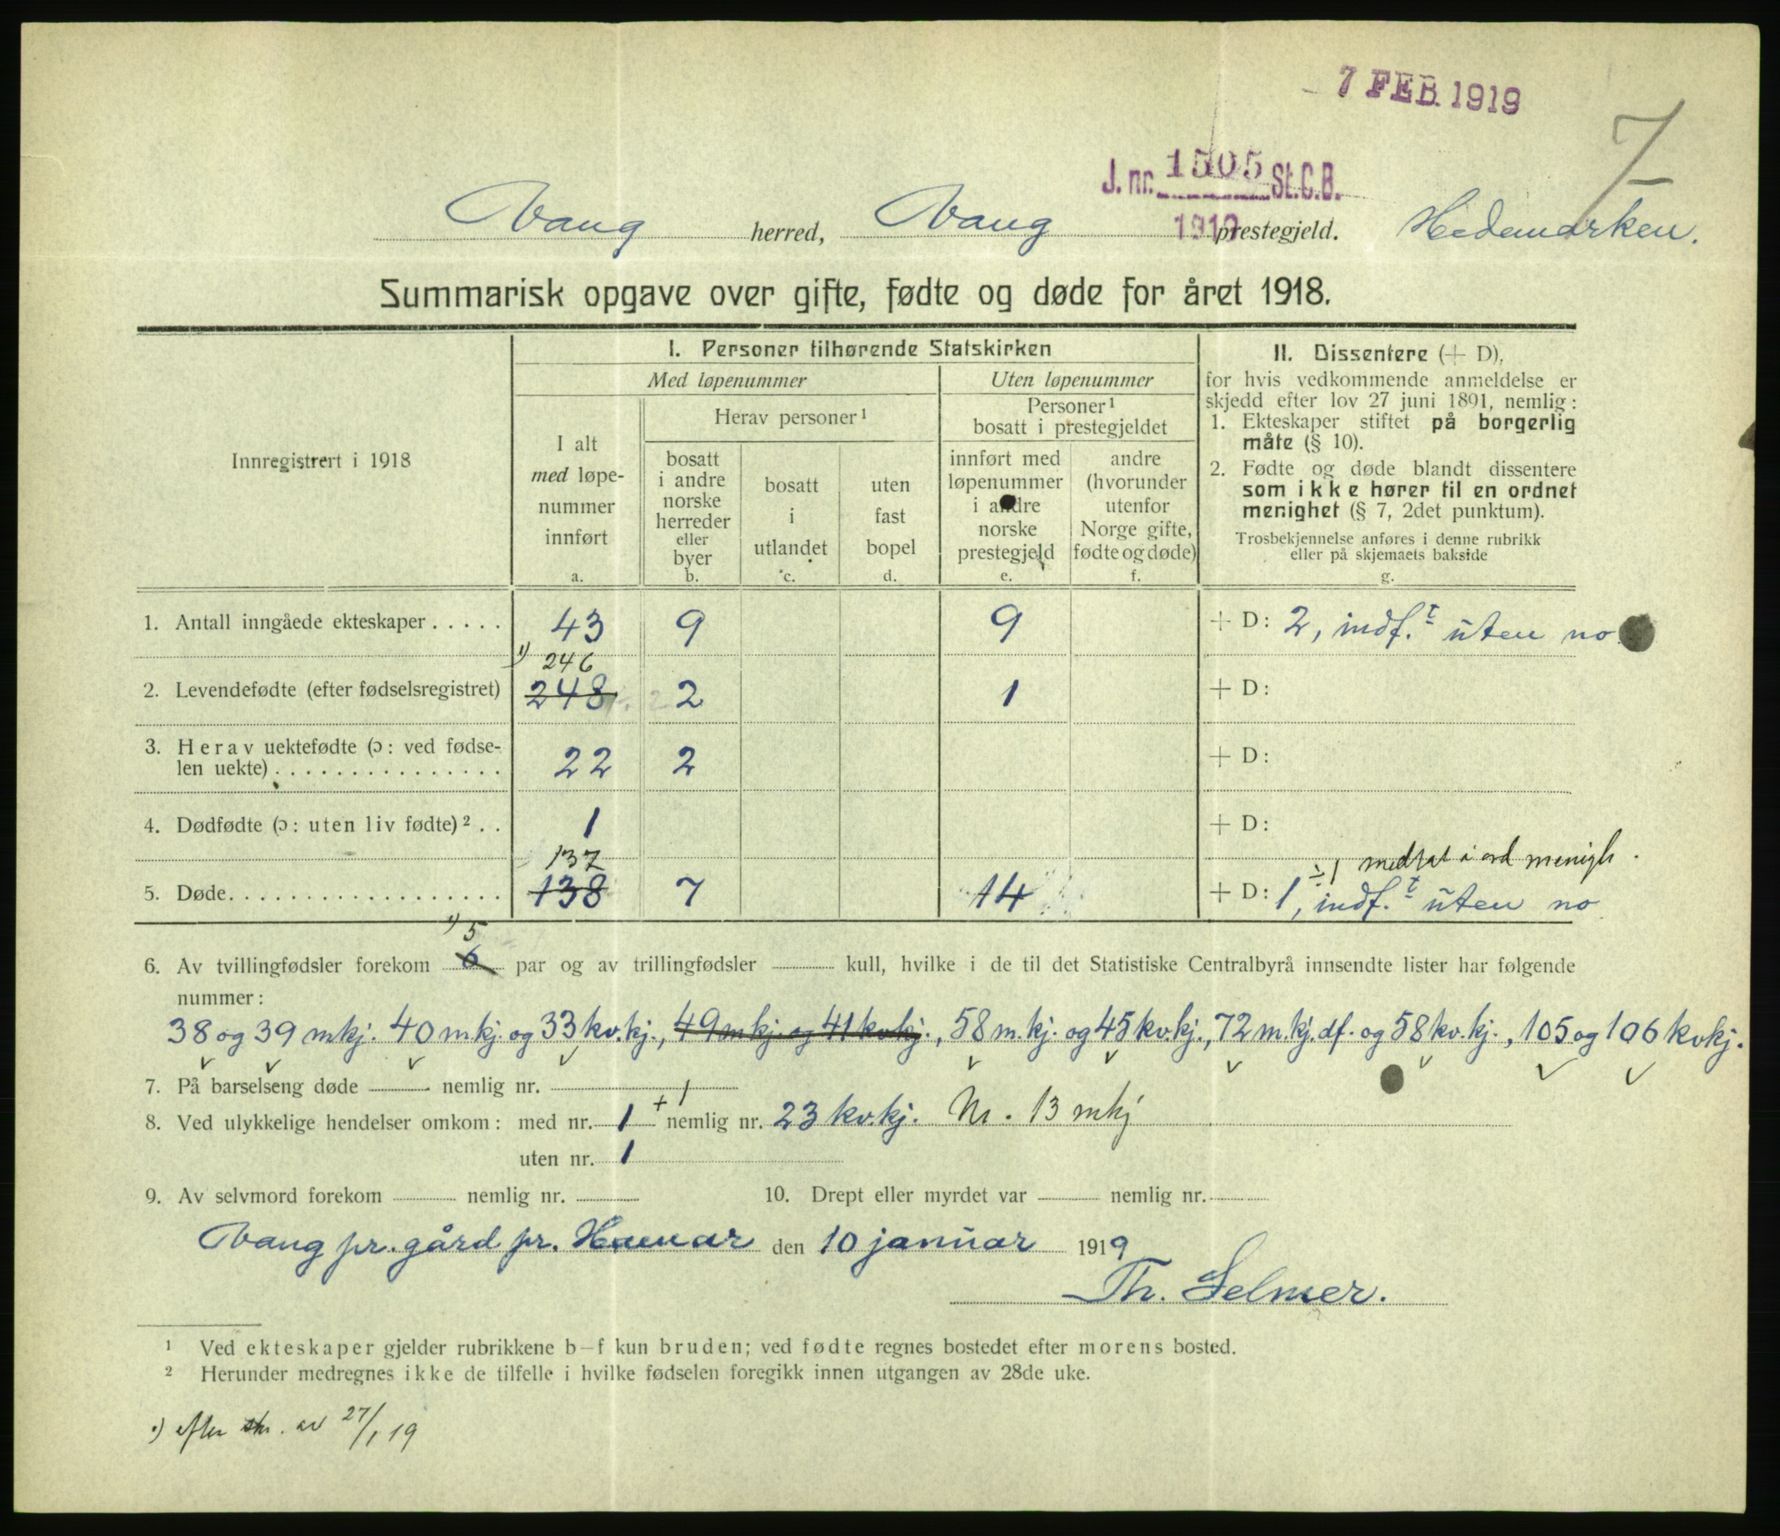 7 FEB. 1919
7
J. nr. 1505 St.C.B.
1919
Vang herred, Vang prestegjeld. Hedemarken.
Summarisk opgave over gifte, fødte og døde for året 1918.
Innregistrert i 1918
I. Personer tilhørende Statskirken
Med løpenummer
Uten løpenummer
I alt
med løpe-
nummer
innført
a.
Herav personer¹
bosatt
i andre
norske
herreder
eller
byer
b.
bosatt
i
utlandet
c.
uten
fast
bopel
d.
Personer¹
bosatt i prestegjeldet
innført med
løpenummer
i andre
norske
prestegjeld
e.
andre
(hvorunder
utenfor
Norge gifte,
fødte og døde)
f.
II. Dissentere (+ D),
for hvis vedkommende anmeldelse er
skjedd efter lov 27 juni 1891, nemlig:
1. Ekteskaper stiftet på borgerlig
måte (§ 10).
2. Fødte og døde blandt dissentere
som ikke hører til en ordnet
menighet (§ 7, 2det punktum).
Trosbekjennelse anføres i denne rubrikk
eller på skjemaets bakside
g.
1. Antall inngåede ekteskaper ..... 43 9 9 + D: 2, indf.t uten no
¹) 246
2. Levendefødte (efter fødselsregistret) 248 2 1 + D:
3. Herav uektefødte (ɔ: ved fødse-
len uekte) ............... 22 2 + D:
4. Dødfødte (ɔ: uten liv fødte)² .. 1 + D:
137 ÷1 medtat i ord menigh.
5. Døde.................. 138 7 14 + D: 1, indf.t uten no
¹) 5
6. Av tvillingfødsler forekom 6 par og av trillingfødsler ...... kull, hvilke i de til det Statistiske Centralbyrå innsendte lister har følgende
nummer:
38 og 39 mkj. 40 mkj. og 33 kv.kj., 49 mkj og 41 kvkj., 58 m.kj. og 45 kv.kj., 72 m.kj.df. og 58 kv.kj., 105 og 106 kvkj.
7. På barselseng døde ...... nemlig nr. ......
8. Ved ulykkelige hendelser omkom: med nr. 1 + 1 nemlig nr. 23 kv.kj. Nr. 13 mkj
uten nr. 1
9. Av selvmord forekom ...... nemlig nr. ...... 10. Drept eller myrdet var ...... nemlig nr. ......
Vang pr.gård pr. Hamar den 10 januar 1919
Th. Selmer.
¹ Ved ekteskaper gjelder rubrikkene b–f kun bruden; ved fødte regnes bostedet efter morens bosted.
² Herunder medregnes ikke de tilfelle i hvilke fødselen foregikk innen utgangen av 28de uke.
¹) efter skr. av 27/1 19